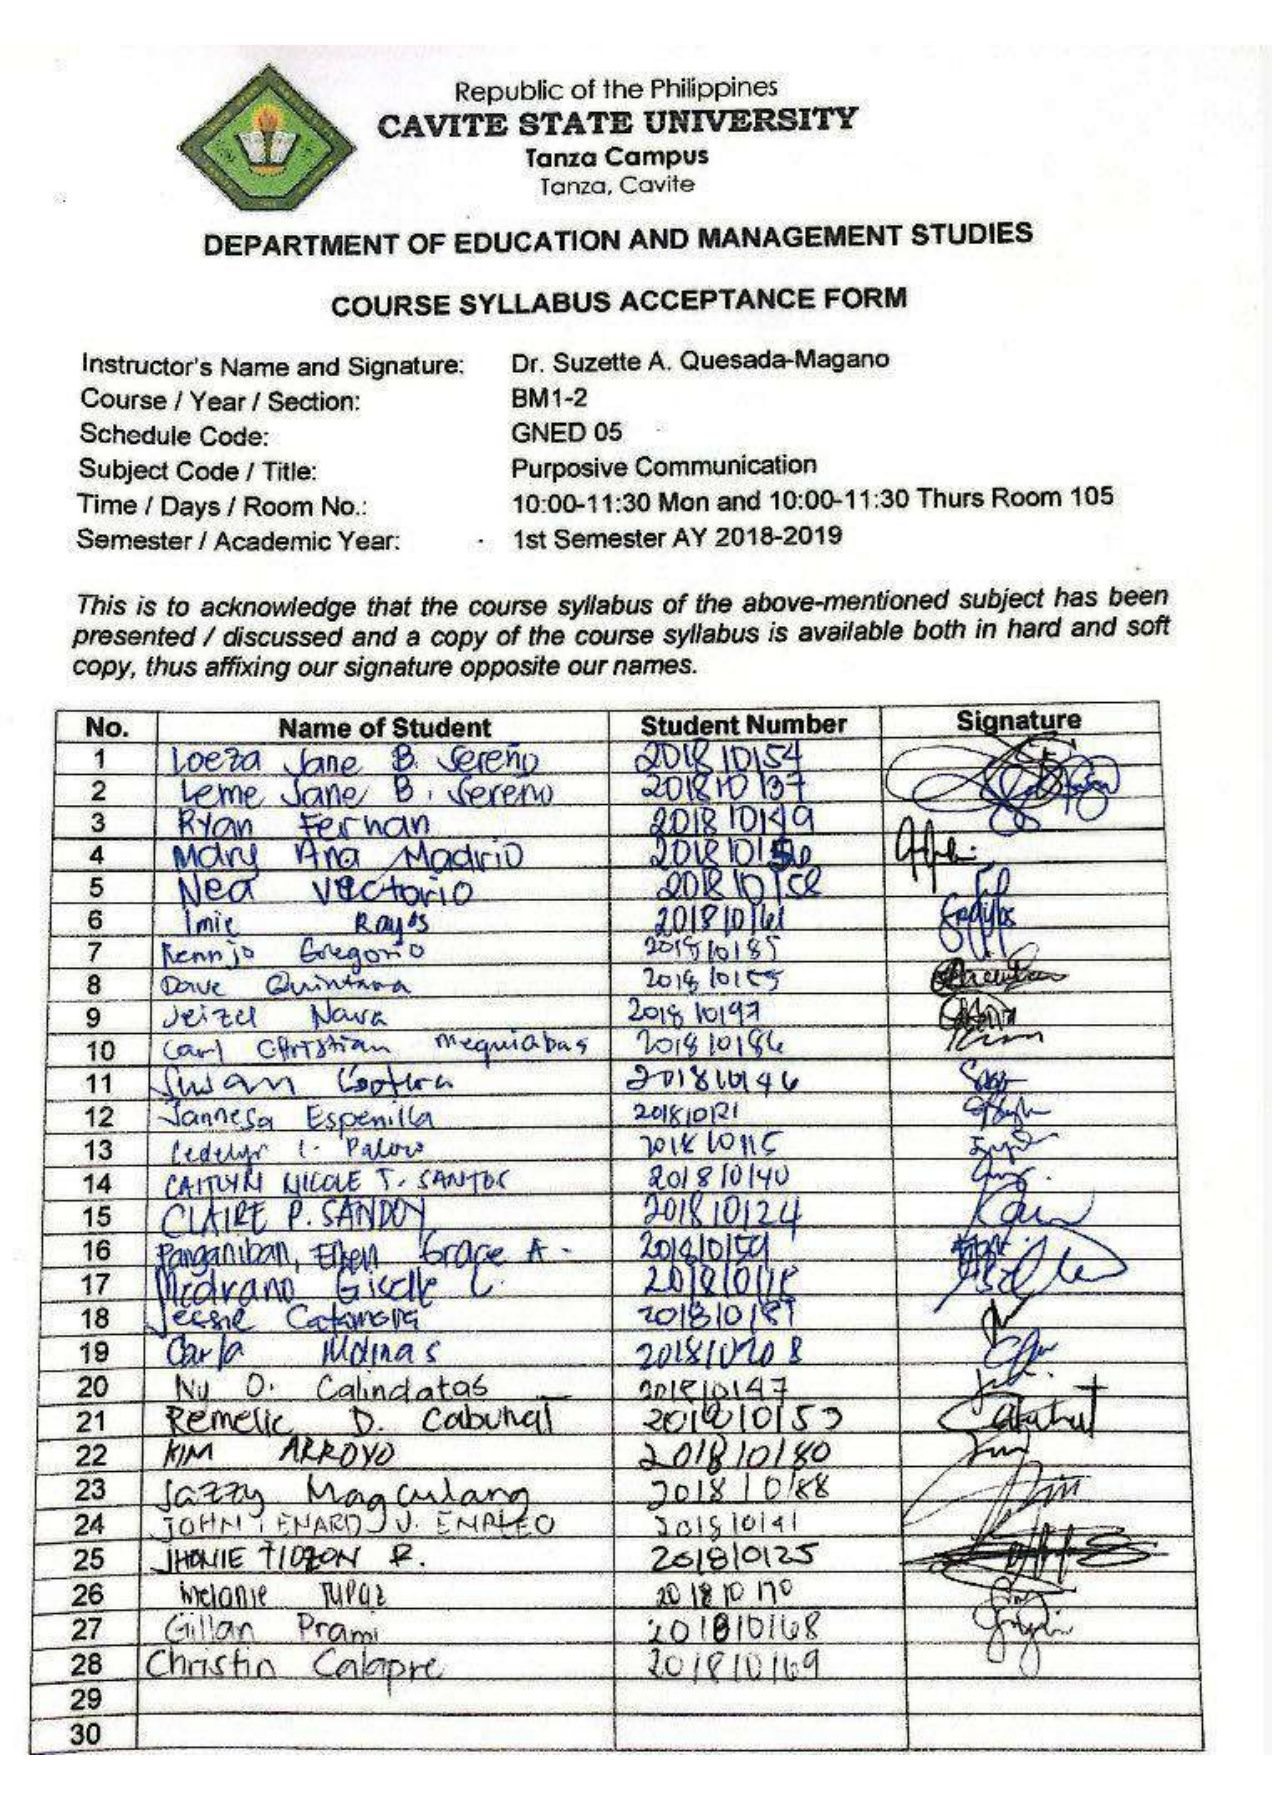 Republic of the Philippines
CAVITE STATE UNIVERSITY
Tanza Campus
Tanza, Cavite
DEPARTMENT OF EDUCATION AND MANAGEMENT STUDIES
COURSE SYLLABUS ACCEPTANCE FORM
Instructor's Name and Signature: Dr. Suzette A. Quesada-Magano
Course / Year / Section: BM1-2
Schedule Code: GNED 05
Subject Code / Title: Purposive Communication
Time / Days / Room No.: 10:00-11:30 Mon and 10:00-11:30 Thurs Room 105
Semester / Academic Year: 1st Semester AY 2018-2019
This is to acknowledge that the course syllabus of the above-mentioned subject has been
presented / discussed and a copy of the course syllabus is available both in hard and soft
copy, thus affixing our signature opposite our names.
No. Name of Student Student Number Signature
1 Loeza Jane B. Sereño 201810154
2 Leme Jane B. Sereno 201810137
3 Ryan Fernan 201810149
4 Mary Ana Madirio
5 Nea Victorio 201810158
6 Imie Rayos 201810161
7 Rennjo Gregorio 201810185
8 Dave Quintana
9 Jeizel Nava 201810197
10 Carl Christian Mequiabas 201810186
11 Susan 201810146
12 Jannesa Espenilla 201810121
13 201810115
14 CAITLYN NICOLE T. SANTOS 201810140
15 CLAIRE P. SANDOY 201810124
16 Panganiban, Ellen Grace A.
17 Medrano Giselle C.
18 Jessie 201810187
19 Carla Molinas 201810208
20 Ny O. Calindatas 201810147
21 Remelie D. Cabuhat 201810153 Cabuhat
22 KIM ARROYO 201810180
23 Jazzy Magculang 201810188
24 JOHN LENARD J. EMPLEO 201810141
25 JHONIE TIOZON R. 201810125
26 Melanie Tupaz 201810170
27 Gillan Prami 201810168
28 Christin Calapre 201810169
29
30